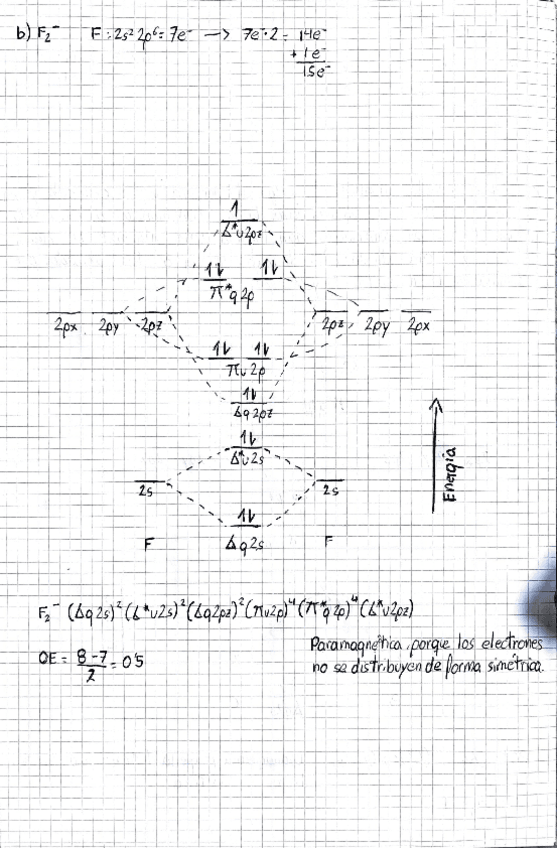 b) F₂⁻ F: 2s² 2p⁶ = 7e⁻ → 7e⁻·2 = 14e⁻
+ 1e⁻
15e⁻
1
Δ*u2pz
1↓ 1↓
π*g2p
2px 2py 2pz 2pz 2py 2px
1↓ 1↓
πu2p
1↓
Δg2pz
1↓
Δ*u2s
2s 2s
1↓
F Δg2s F
Energía
F₂⁻ (Δg2s)² (Δ*u2s)² (Δg2pz)² (πu2p)⁴ (π*g2p)⁴ (Δ*u2pz)
OE = 8-7/2 = 0'5
Paramagnética, porque los electrones
no se distribuyen de forma simétrica.